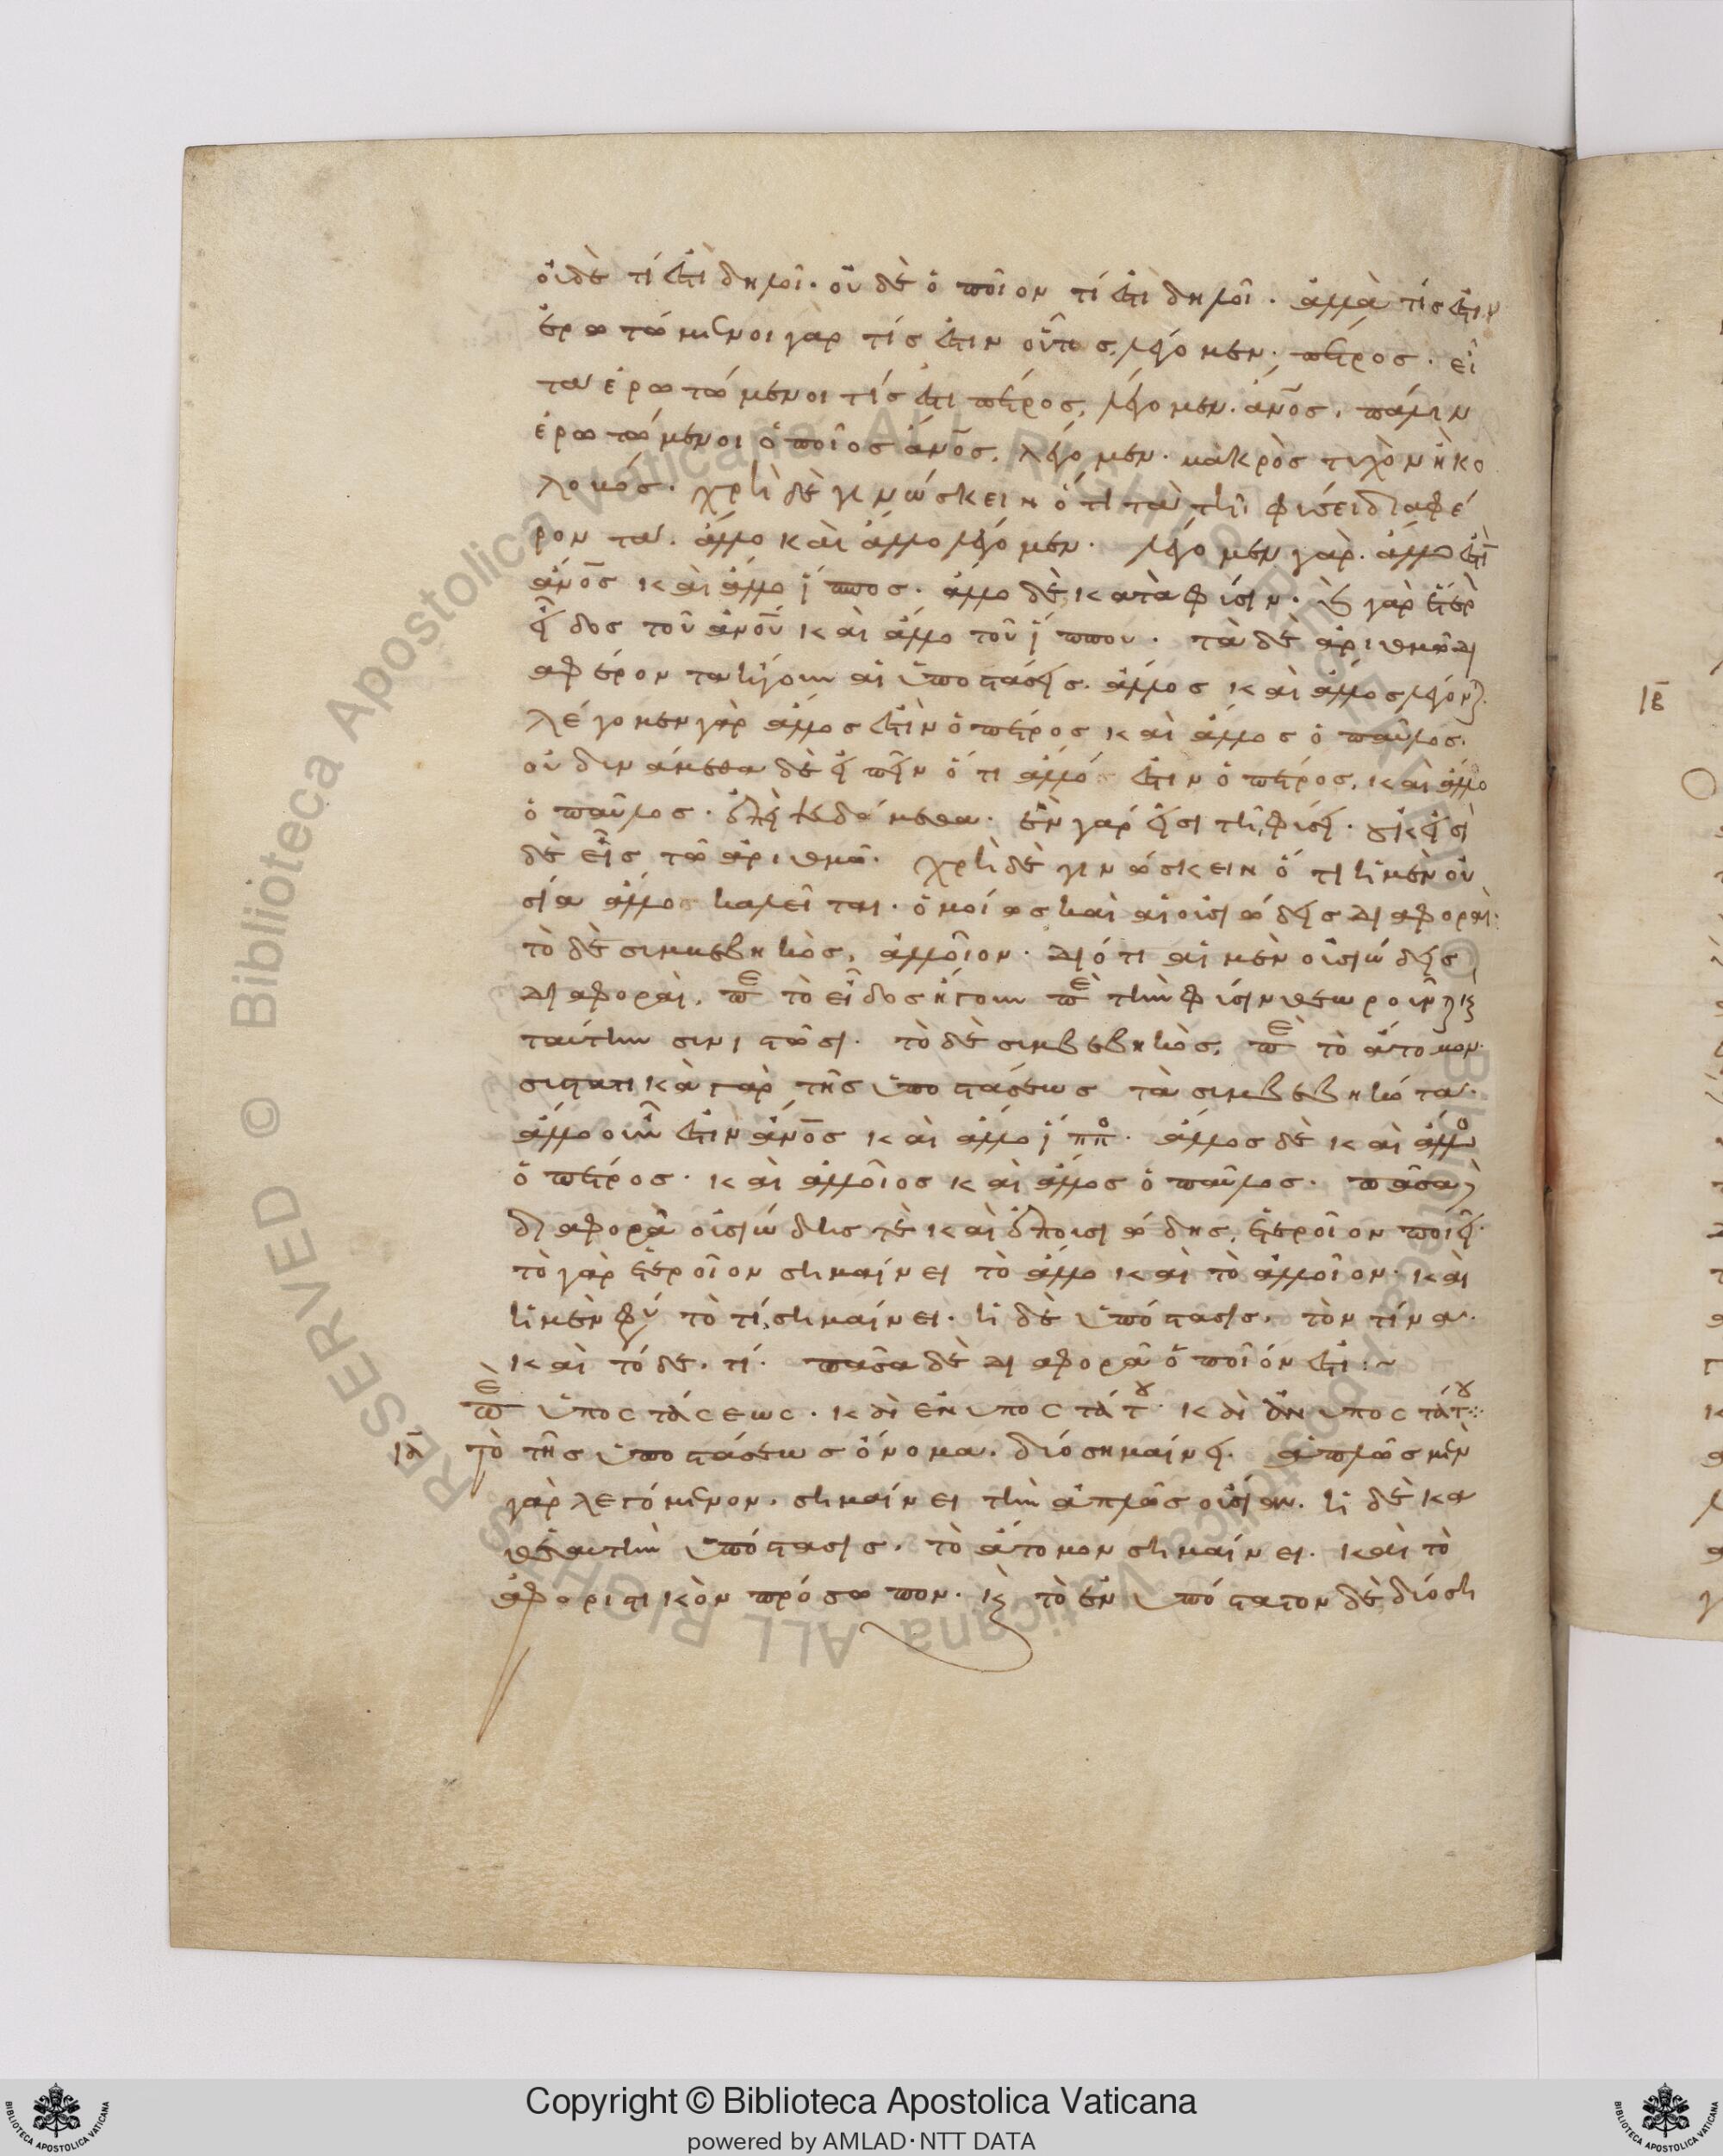 οὐδὲ τί ἐστι δηλοῖ· οὐδὲ ὁποῖον τί ἐστι δηλοῖ· ἀλλὰ τίς ἐστιν
ἐρωτώμενοι γὰρ τίς ἐστιν οὗτος, λέγομεν· πέτρος· εἶ
τα ἐρωτώμενοι τίς ἐστι πέτρος, λέγομεν· ἄνος· πάλιν
ἐρωτώμενοι ὁποῖος ἄνος, λέγομεν· μακρὸς τυχὸν ἢ κο
λοβός· χρὴ δὲ γινώσκειν ὅτι τὰ τῇ φύσει διαφέ
ροντα· ἄλλο καὶ ἄλλο λέγομεν· λέγομεν γὰρ· ἄλλο ἐστὶ
ἄνος καὶ ἄλλο ἵππος· ἄλλο δὲ κατὰ φύσιν· γὰρ
εἶδος τοῦ ἀνου καὶ ἄλλο τοῦ ἵππου· τὰ δὲ ἀριθμῶ δι
αφέροντα ἤγουν αἱ ὑποστάσεις· ἄλλος καὶ ἄλλος λέγον
λέγομεν γὰρ ἄλλος ἐστὶν ὁ πέτρος καὶ ἄλλος ὁ παῦλος·
οὐ δυνάμεθα δὲ εἰπεῖν ὅτι ἄλλό ἐστιν ὁ πέτρος, καὶ ἄλλο
ὁ παῦλος· ἐπεὶ ψευδόμεθα· ἓν γάρ εἰσι τῇ φύσει· οὐκ εἰσὶ
δὲ εἷς τῶ ἀριθμῶ· χρὴ δὲ γινώσκειν ὅτι ἡ μὲν οὐ
σία ἄλλο καλεῖται· ὁμοίως καὶ αἱ οὐσιώδεις διαφοραί·
τὸ δὲ συμβεβηκὸς, ἀλλοῖον· διότι αἱ μὲν οὐσιώδεις
διαφοραὶ, πε τὸ εἶδος ἤγουν πε τὴν φύσιν θεωροῦν
ταύτην συνιστῶσι· τὸ δὲ συμβεβηκὸς, πε τὸ ἄτομον·
συστατικὰ γὰρ τῆς ὑποστάσεως τὰ συμβεβηκότα·
ἄλλο οὖν ἐστὶν ἄνος καὶ ἄλλο ἵππο· ἄλλος δὲ καὶ ἄλλοιο
ὁ πέτρος· καὶ ἀλλοῖος καὶ ἄλλος ὁ παῦλος· πᾶσα
διαφορὰ οὐσιώδης τὲ καὶ ἐπουσιώδης, ἑτεροῖον ποιεῖ·
τὸ γὰρ ἑτεροῖον σημαίνει τὸ ἄλλο καὶ τὸ ἀλλοῖον· καὶ
ἡ μὲν φύ τὸ τί, σημαίνει· ἡ δὲ ὑπόστασις, τὸν τίνα·
καὶ τόδε τί· πᾶσα δὲ διαφορὰ ὁποῖόν ἐστι :~
πε ὑποστάσεως· καὶ ἐνυποστάτου· καὶ ἀνυποστάτου:·
ια τὸ τῆς ὑποστάσεως ὄνομα· δύο σημαίνει· ἁπλῶς μὲν
γὰρ λεγόμενον· σημαίνει τὴν ἁπλῶς οὐσίαν· ἡ δὲ κα
θ’ἑαυτὴν ὑπόστασις, τὸ ἄτομον σημαίνει· καὶ τὸ
ἀφοριστικὸν πρόσωπον· κ τὸ ἐνυπόστατον δὲ δύο ση
ιβ
Copyright © Biblioteca Apostolica Vaticana
powered by AMLAD·NTT DATA